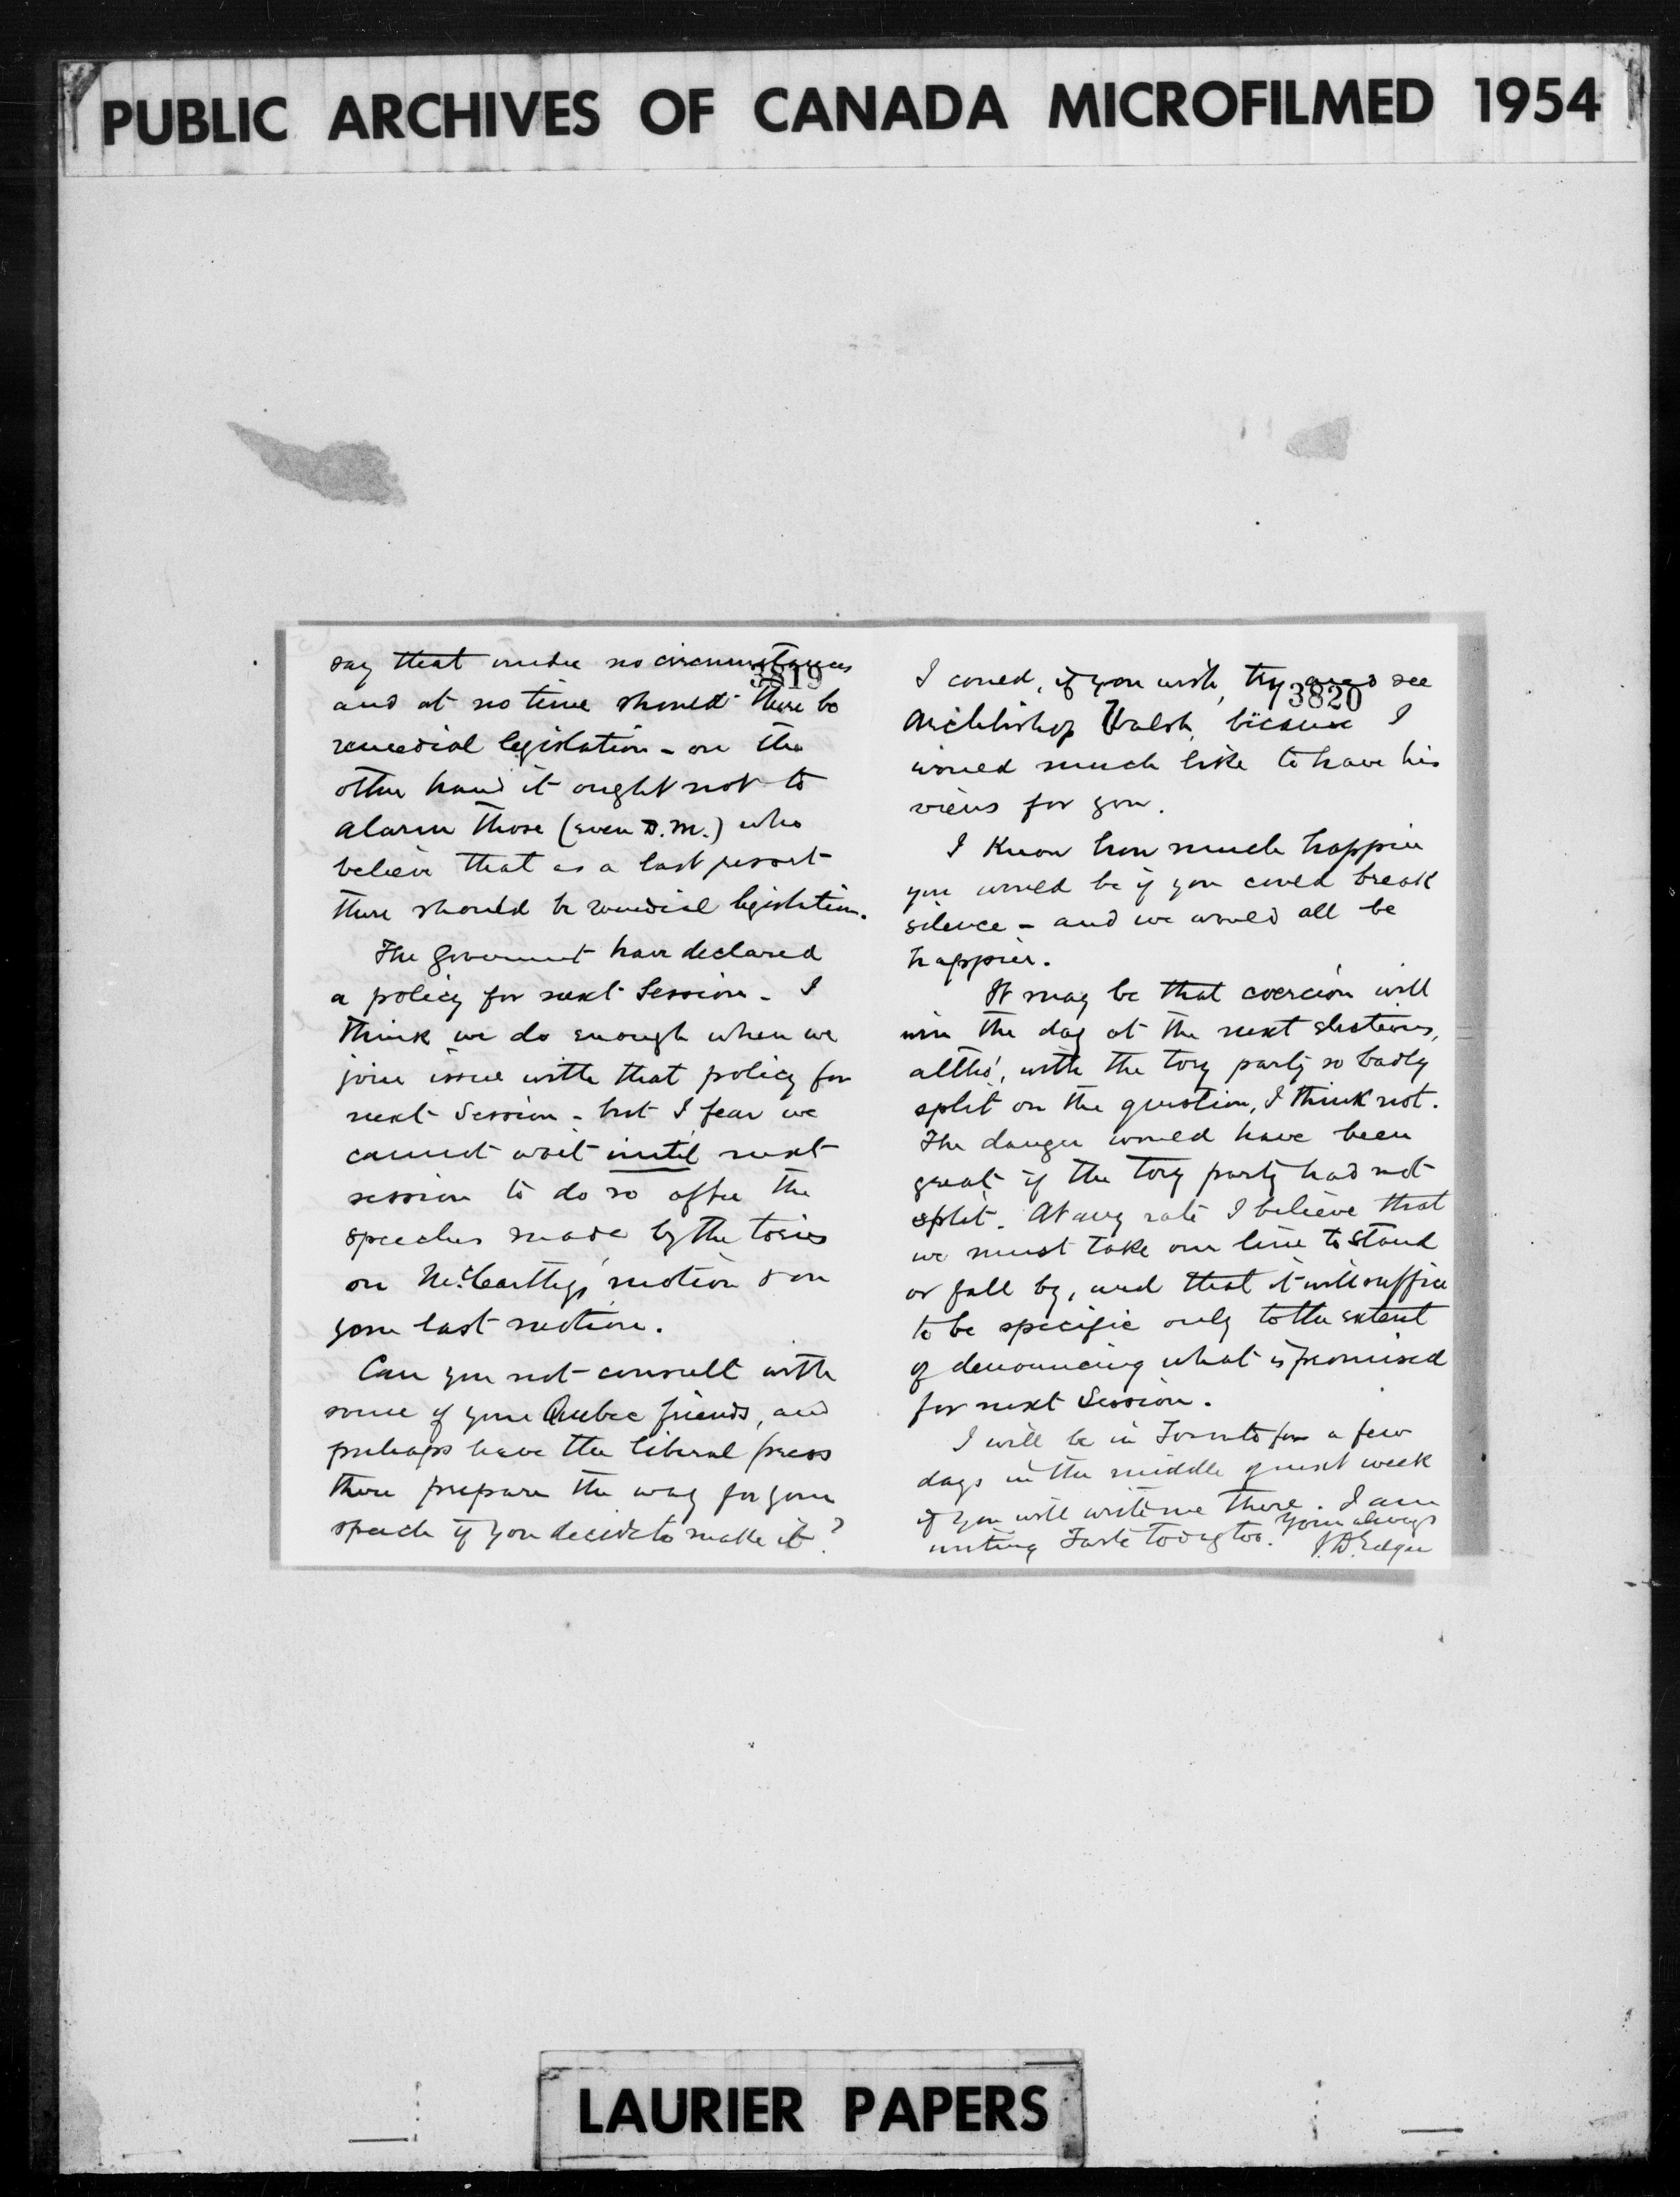 PUBLIC ARCHIVES OF CANADA MICROFILMED 1954
3819
say that under no circumstances
and at no time should there be
remedial legislation - on the
other hand it ought not to
alarm those (even D.M.) who
believe that as a last resort
there should be remedial legislation.
The Government have declared
a policy for next Session - I
think we do enough when we
join issue with that policy for
next Session - but I fear we
cannot wait until next
session to do so after the
speeches made by the tories
on McCarthy's motion & on
your last motion.
Can you not consult with
some of your Quebec friends, and
perhaps have the liberal press
there prepare the way for your
speech if you decide to make it?
3820
I could, if you wish, try and see
Archbishop Walsh, because I
would much like to have his
views for you.
I know how much happier
you would be if you could break
silence - and we would all be
happier.
It may be that coercion will
win the day at the next elections,
altho', with the tory party so badly
split on the question, I think not.
The danger would have been
great if the tory party had not
split. At any rate I believe that
we must take our line to stand
or fall by, and that it will suffice
to be specific only to the extent
of denouncing what is promised
for next Session.
I will be in Toronto for a few
days in the middle of next week
if you will write me there. I am
writing Tarte today too. Yours always
J.D. Edgar
LAURIER PAPERS